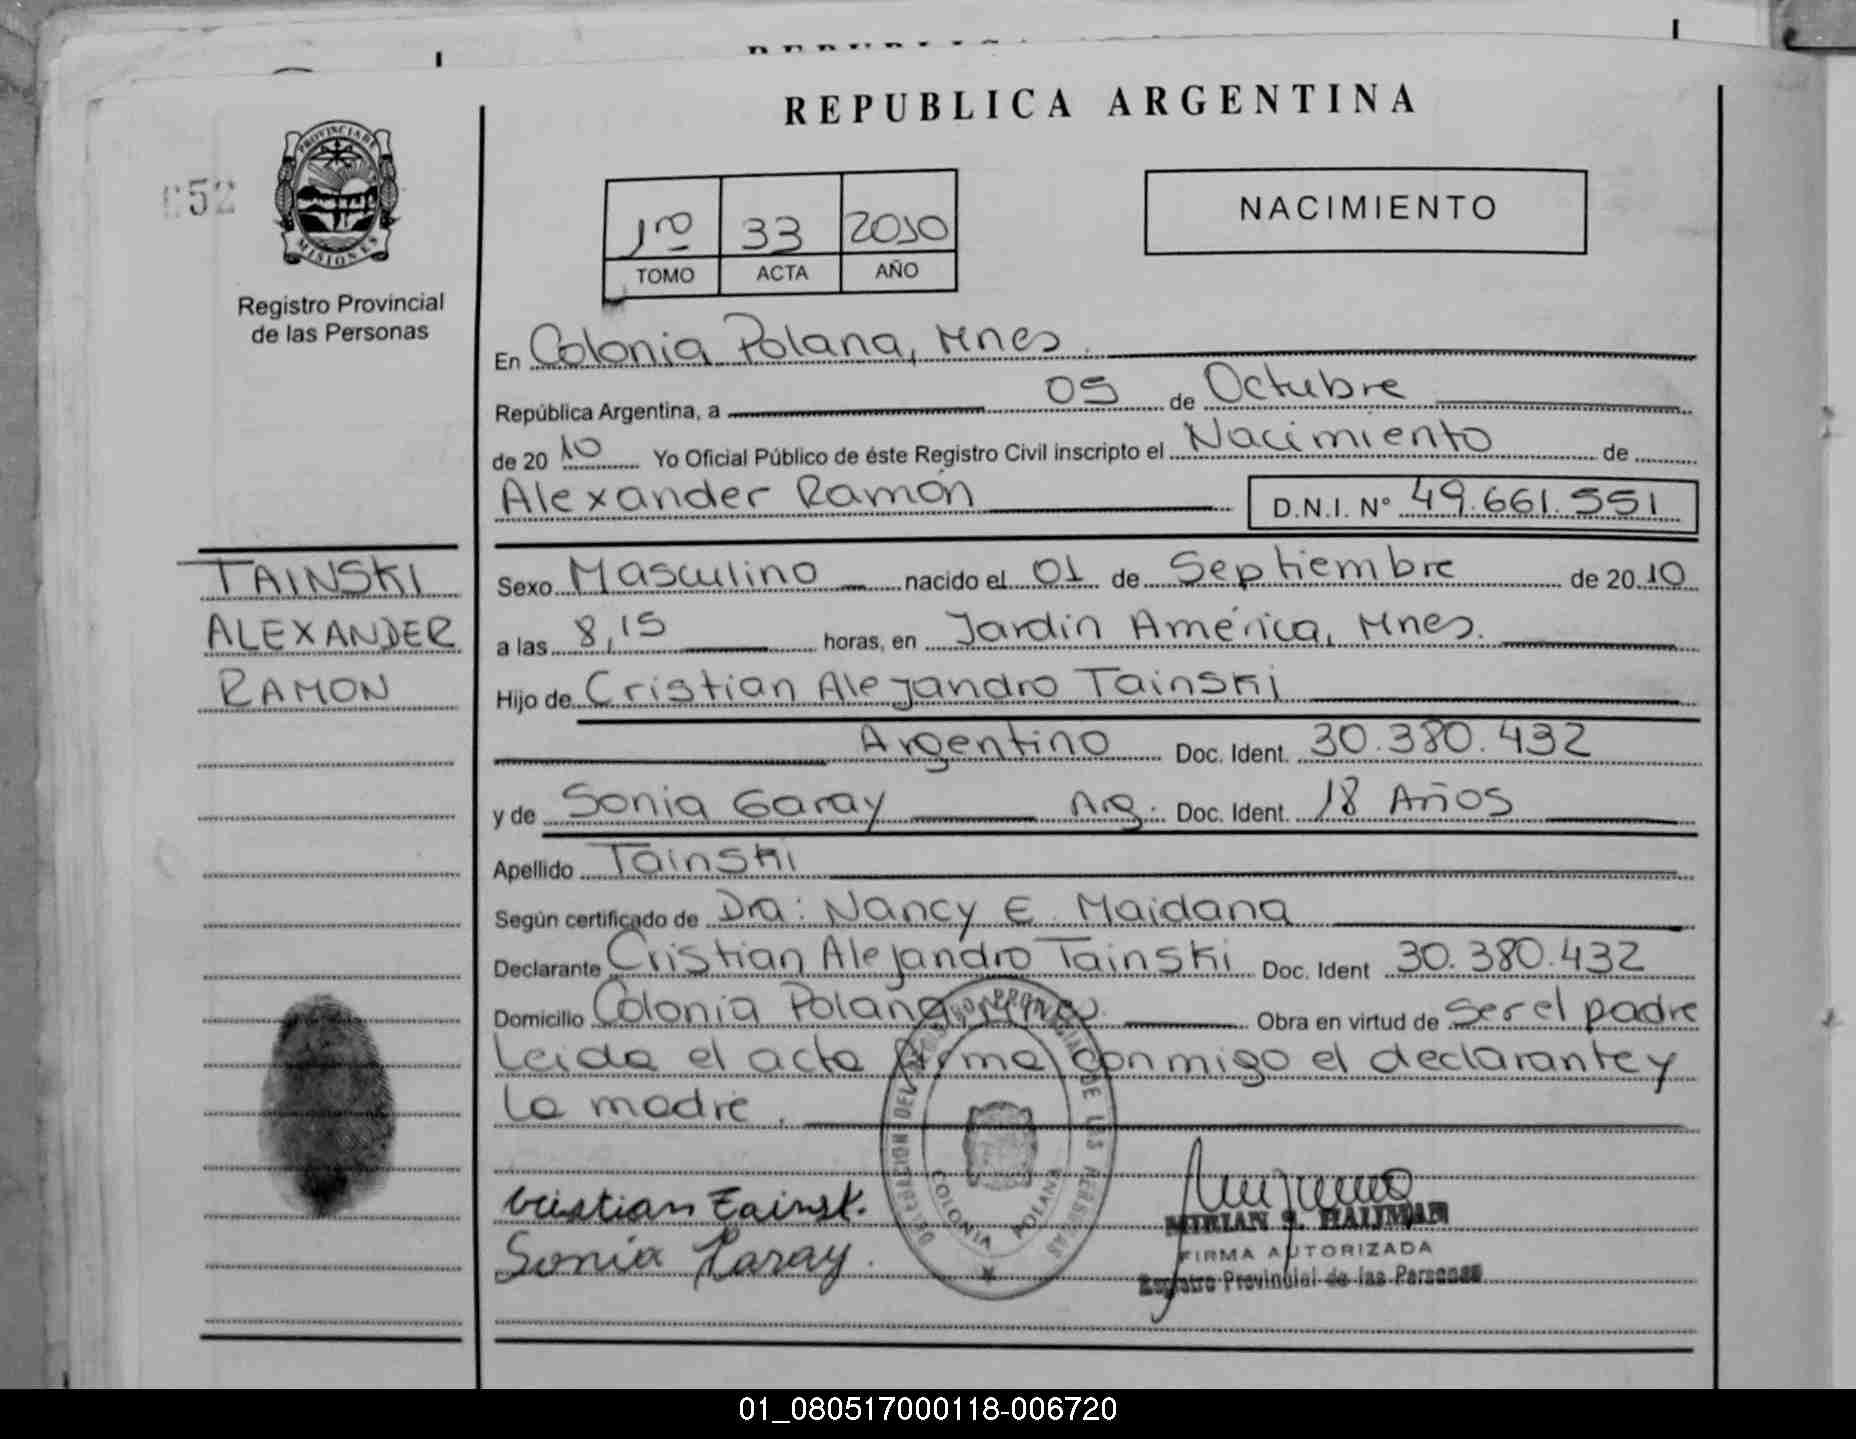 REPUBLICA ARGENTINA
052
PROVINCIA DE
MISIONES
Registro Provincial
de las Personas
1ro 33 2010
TOMO ACTA AÑO
NACIMIENTO
En Colonia Polana, Mnes.
República Argentina, a 05 de Octubre
de 2010 Yo Oficial Público de éste Registro Civil inscripto el Nacimiento de
Alexander Ramón D.N.I. N° 49.661.551
TAINSKI
ALEXANDER
RAMON
Sexo Masculino nacido el 01 de Septiembre de 2010
a las 8,15 horas, en Jardín América, Mnes.
Hijo de Cristian Alejandro Tainski
Argentino Doc. Ident. 30.380.432
y de Sonia Garay Arg. Doc. Ident. 18 Años
Apellido Tainski
Según certificado de Dra: Nancy E. Maidana
Declarante Cristian Alejandro Tainski Doc. Ident 30.380.432
Domicilio Colonia Polana, Mnes. Obra en virtud de ser el padre
Leida el acta firma conmigo el declarante y
la madre.
DELEGACION DEL REGISTRO PROVINCIAL DE LAS PERSONAS
COLONIA POLANA
Cristian Tainsk.
Sonia Garay.
MIRIAN
FIRMA AUTORIZADA
Registro Provincial de las Personas
01_080517000118-006720